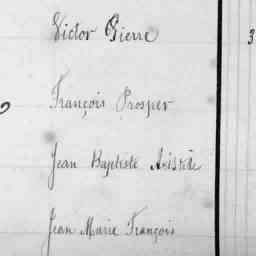 Victor Pierre
3
François Prosper
Jean Baptiste Aristide
Jean Marie François